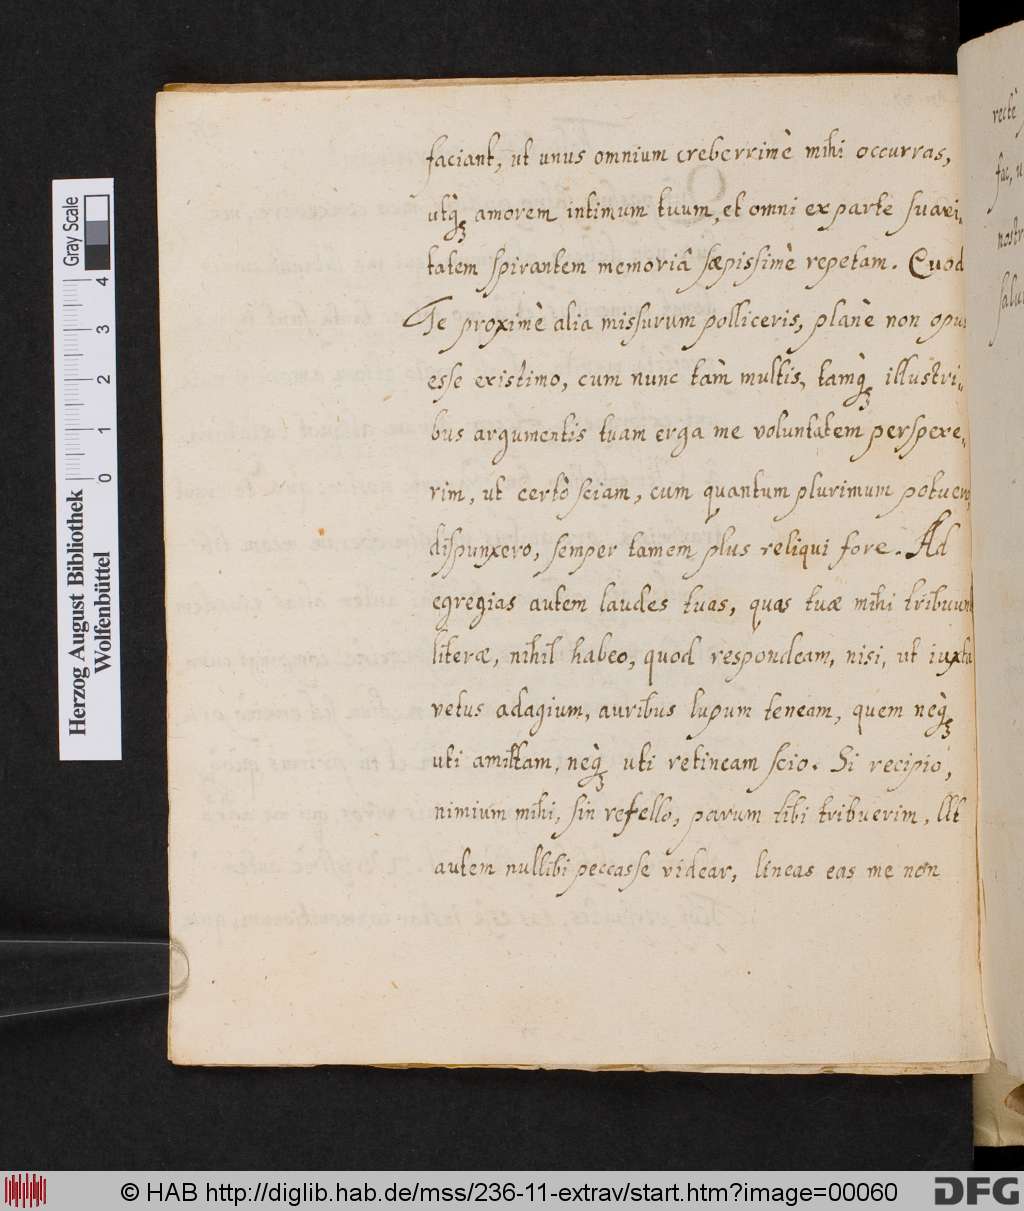 faciant, ut unus omnium creberrimè mihi occurras,
utq́; amorem intimum tuum, et omni ex parte suavi-
tatem spirantem memoriâ sæpissimè repetam. Quod
Te proximè alia missurum polliceris, planè non opus
esse existimo, cum nunc tàm multis, tamq́; illustri-
bus argumentis tuam erga me voluntatem perspexe-
rim, ut certò sciam, cum quantum plurimum potuero,
dispunxero, semper tamem plus reliqui fore. Ad
egregias autem laudes tuas, quas tuæ mihi tribuunt
literæ, nihil habeo, quod respondeam, nisi, ut iuxta
vetus adagium, auribus lupum teneam, quem neq́;
uti amittam, neq́; uti retineam scio. Si recipio,
nimium mihi, sin refello, parum tibi tribuerim, Ut
autem nullibi peccasse videar, lineas eas me non
rectè
fac, u
nostr
salu
Herzog August Bibliothek
Wolfenbüttel
0 1 2 3 4
Gray Scale
© HAB http://diglib.hab.de/mss/236-11-extrav/start.htm?image=00060
DFG